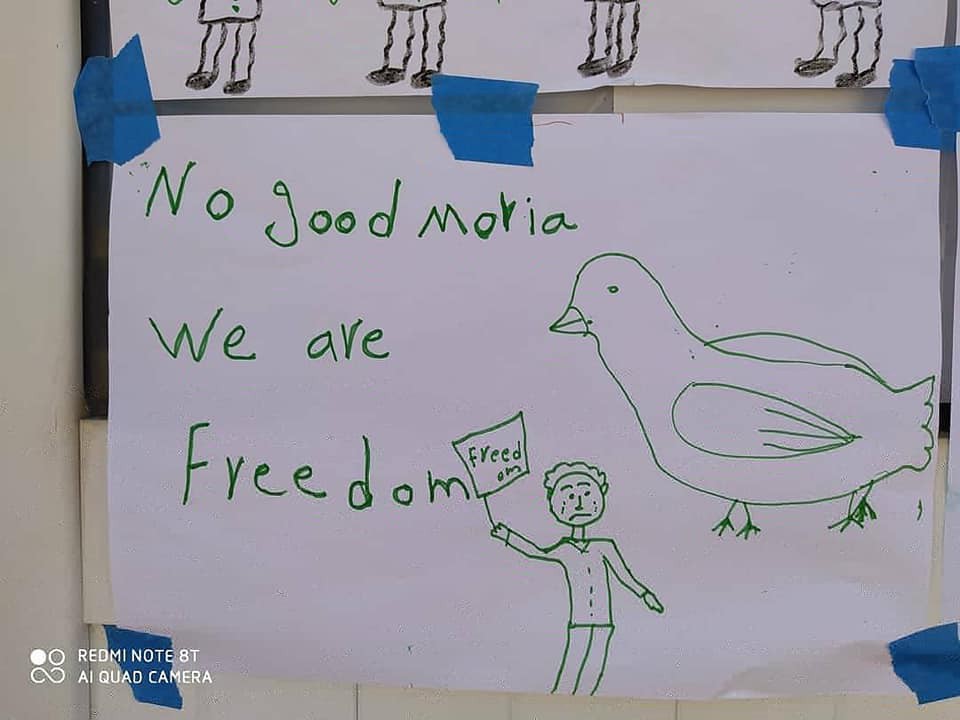 No good moria
We are
Freedom
Freed
om
REDMI NOTE 8T
AI QUAD CAMERA